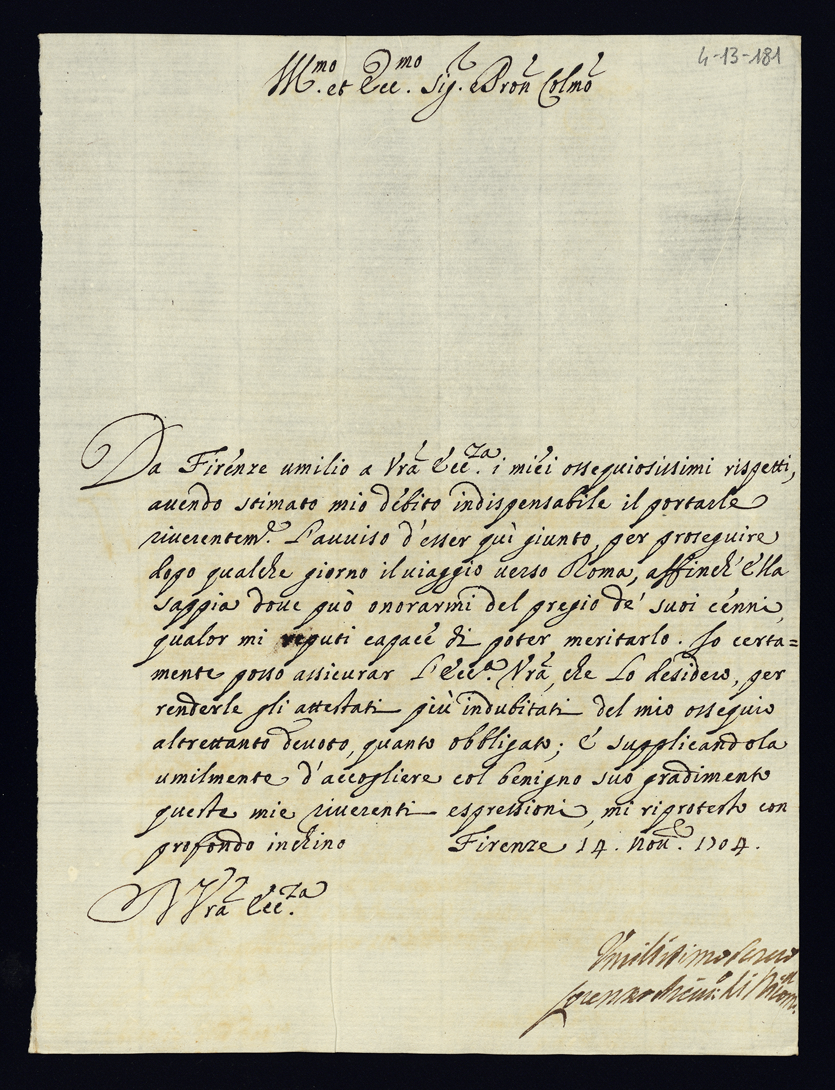 4-13-181
Ill.mo et Ecc.mo Sig.r e Pron Colmo
Da Firenze umilio a Vra Ecc.za i miei ossequiosissimi rispetti,
avendo stimato mio debito indispensabile il portarle
riverentem.e l'avviso d'esser quì giunto, per proseguire
dopo qualche giorno il viaggio verso Roma, affinch'Ella
sappia dove può onorarmi del pregio de' suoi cenni,
qualor mi reputi capace di poter meritarlo. Io certa=
mente posso assicurar l'Ecc.a Vra, che lo desidero, per
renderle gli attestati più indubitati del mio ossequio
altrettanto devoto, quanto obbligato; E supplicandola
umilmente d'accogliere col benigno suo gradimento
queste mie riverenti espressioni, mi riprotesto con
profondo inchino Firenze 14. Nov.e 1704.
A Vra Ecc.za
Umilissimo Servo
Lorenzo